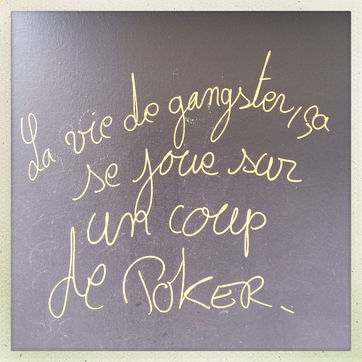 La vie de gangster, ça
se joue sur
un coup
de POKER.